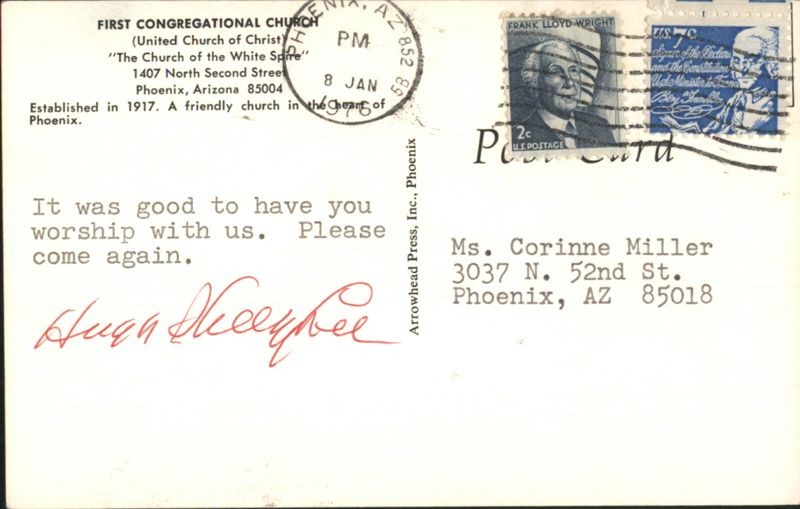 FIRST CONGREGATIONAL CHURCH
(United Church of Christ)
"The Church of the White Spire"
1407 North Second Street
Phoenix, Arizona 85004
Established in 1917. A friendly church in the heart of
Phoenix.
PHOENIX, AZ 852
PM
8 JAN
1976
FRANK LLOYD WRIGHT
2c
U.S. POSTAGE
US 7c
Signer of the Declaration
and the Constitution
U.S. Minister to France
Benj Franklin
Post Card
It was good to have you
worship with us. Please
come again.
Hugh
Arrowhead Press, Inc., Phoenix
Ms. Corinne Miller
3037 N. 52nd St.
Phoenix, AZ 85018